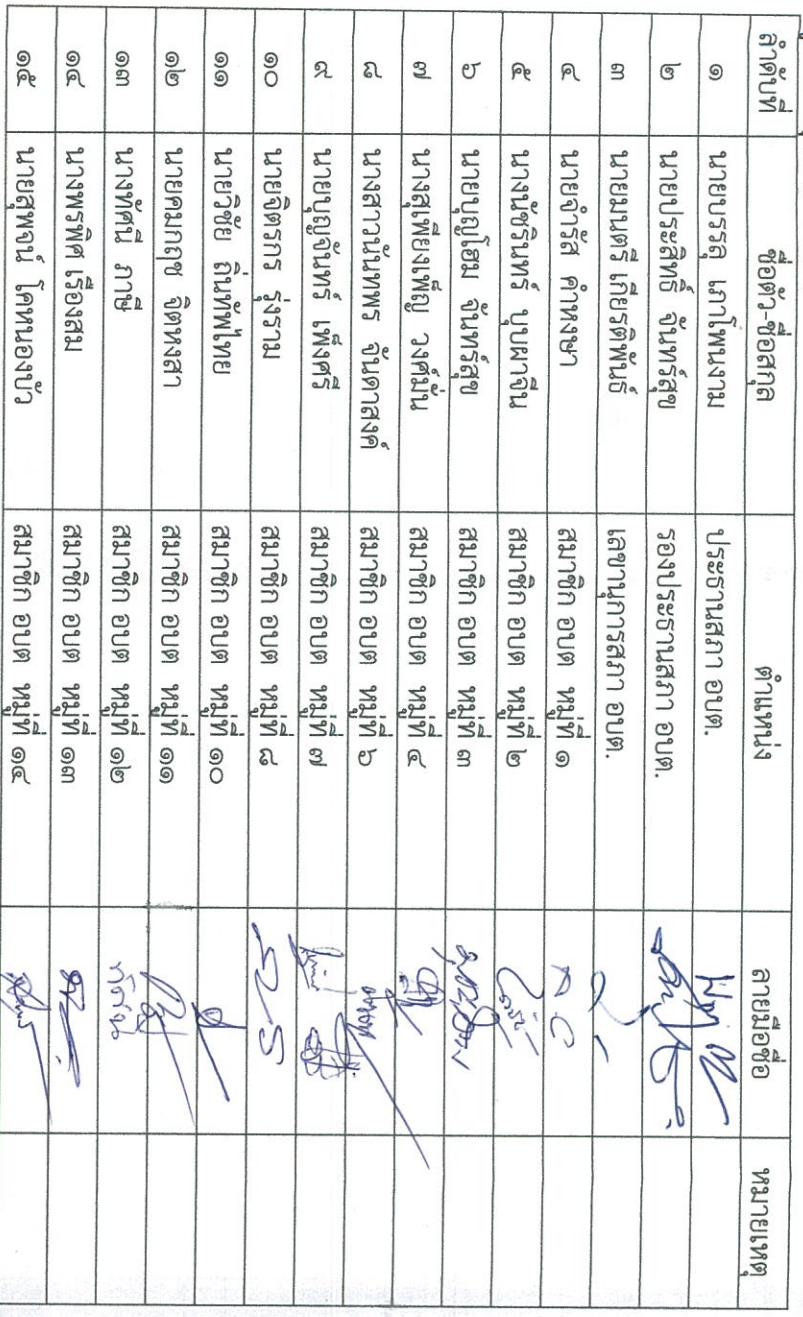 ลำดับที่ ชื่อตัว-ชื่อสกุล ตำแหน่ง ลายมือชื่อ หมายเหตุ
๑ นายบรรลุ เภาโพนงาม ประธานสภา อบต.
๒ นายประสิทธิ์ จันทร์สุข รองประธานสภา อบต.
๓ นายมนตรี เกียรติพันธ์ เลขานุการสภา อบต.
๔ นายจำรัส คำหงษา สมาชิก อบต หมู่ที่ ๑
๕ นางนัชรินทร์ บุบผาจีน สมาชิก อบต หมู่ที่ ๒
๖ นายบุญโฮม จันทร์สุข สมาชิก อบต หมู่ที่ ๓
๗ นางสุเพียงเพ็ญ วงศ์มั่น สมาชิก อบต หมู่ที่ ๔
๘ นางสาวนันทพร จันดาสงค์ สมาชิก อบต หมู่ที่ ๖
๙ นายบุญจันทร์ เพ็งศรี สมาชิก อบต หมู่ที่ ๗
๑๐ นายจิตรกร รุ่งราม สมาชิก อบต หมู่ที่ ๘
๑๑ นายวิชัย ถิ่นทัพไทย สมาชิก อบต หมู่ที่ ๑๐
๑๒ นายคมกฤช จิตหงสา สมาชิก อบต หมู่ที่ ๑๑
๑๓ นางทัศนี ภาษี สมาชิก อบต หมู่ที่ ๑๒ ทัศนีย์
๑๔ นางพรพิศ เรืองสม สมาชิก อบต หมู่ที่ ๑๓
๑๕ นายสุพจน์ โคหนองบัว สมาชิก อบต หมู่ที่ ๑๔